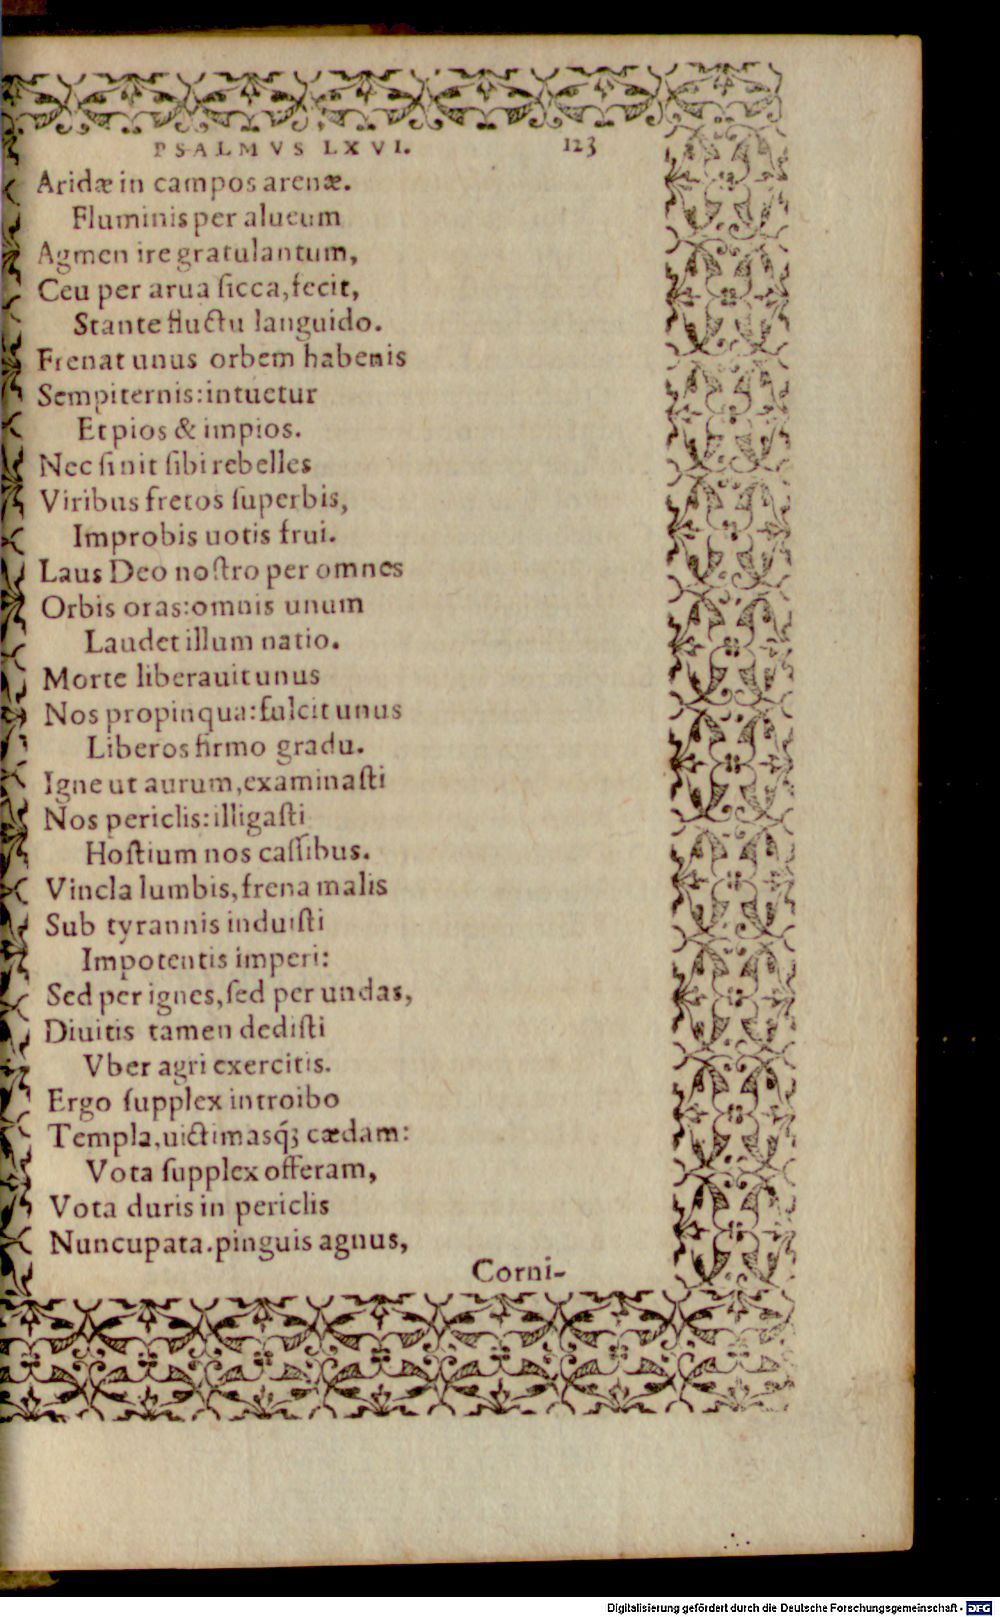 PSALMVS LXVI. 123
Aridæ in campos arenæ.
Fluminis per alueum
Agmen ire gratulantum,
Ceu per arua ſicca, fecit,
Stante fluctu languido.
Frenat unus orbem habenis
Sempiternis: intuetur
Et pios & impios.
Nec ſinit ſibi rebelles
Viribus fretos ſuperbis,
Improbis uotis frui.
Laus Deo noſtro per omnes
Orbis oras: omnis unum
Laudet illum natio.
Morte liberauit unus
Nos propinqua: fulcit unus
Liberos firmo gradu.
Igne ut aurum, examinaſti
Nos periclis: illigaſti
Hoſtium nos caſſibus.
Vincla lumbis, frena malis
Sub tyrannis induiſti
Impotentis imperi:
Sed per ignes, ſed per undas,
Diuitis tamen dediſti
Vber agri exercitis.
Ergo ſupplex introibo
Templa, uictimasq́; cædam:
Vota ſupplex offeram,
Vota duris in periclis
Nuncupata. pinguis agnus,
Corni-
Digitalisierung gefördert durch die Deutsche Forschungsgemeinschaft - DFG